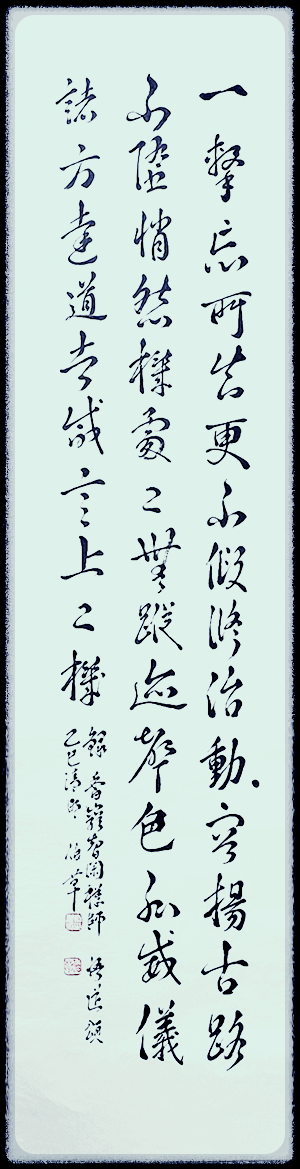 一擊忘所知更不假修治動容揚古路
不墮悄然機處々無蹤迹聲色外威儀
諸方達道者咸言上々機
錄香嚴智閑禪師悟道頌
乙巳清明 伯草